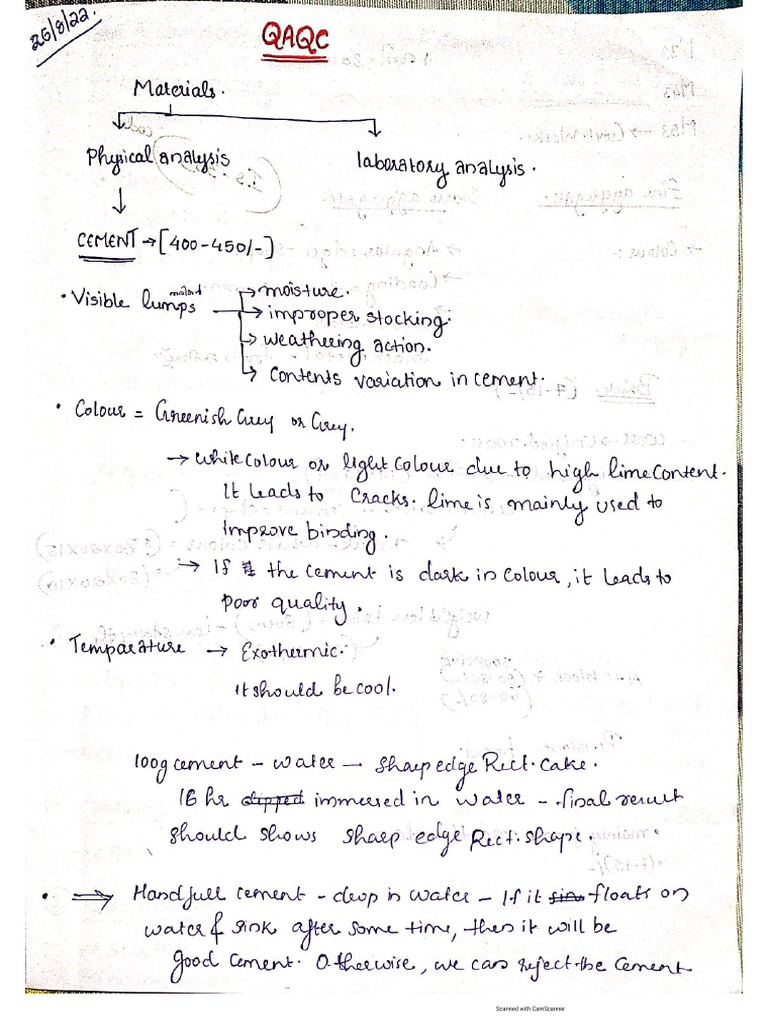 26/8/22.
QAQC
Materials.
Physical analysis
laboratory analysis.
CEMENT → [400-450/-]
• Visible lumps → moisture.
→ improper stocking.
→ weathering action.
→ Contents variation in cement.
• Colour = Greenish Grey or Grey.
→ White Colour or light Colour due to high lime Content.
It leads to Cracks. lime is mainly used to
improve binding.
→ If the cement is dark in Colour, it leads to
poor quality.
• Temparature → Exothermic.
it should be cool.
100g cement - water - Sharp edge Rect. Cake.
16 hr dipped immersed in water - final result
should shows sharp edge Rect. shape.
• ⇒ Handfull cement - drop in water - If it floats on
water & sink after some time, then it will be
good cement. Otherwise, we can reject the cement
Scanned with CamScanner